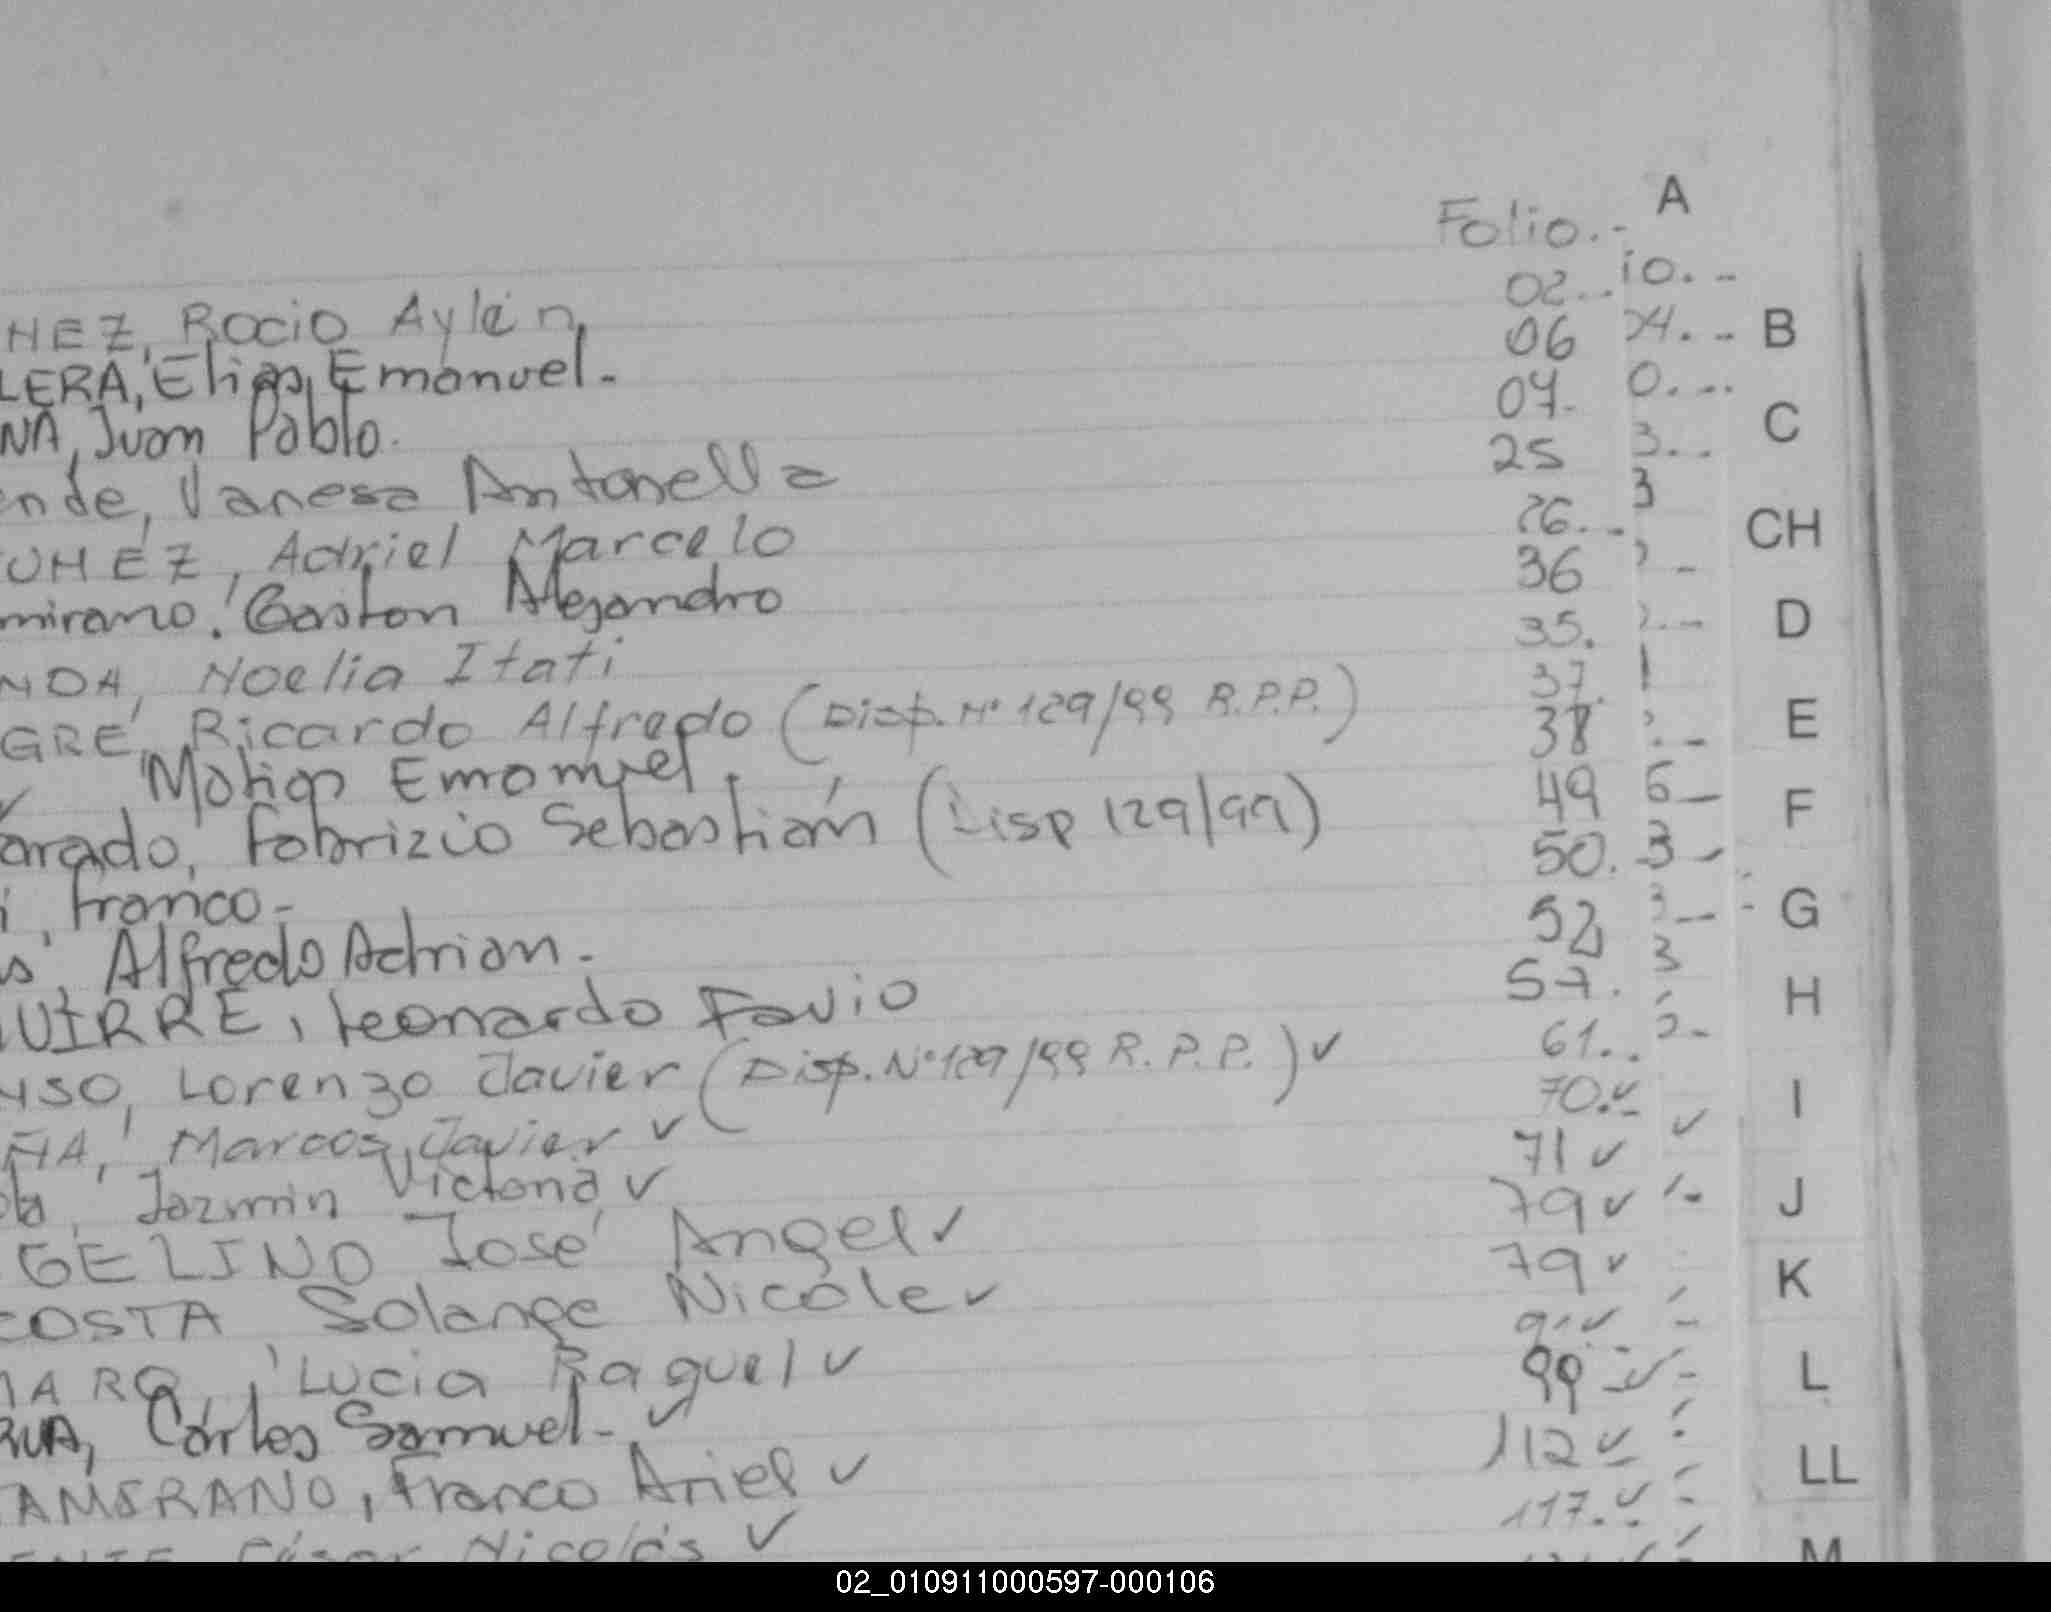 Folio.- A
HEZ, Rocio Aylén 02..
LERA, Elias Emanuel.- 06
B
NA, Juan Pablo. 07.
C
nde, Vanesa Antonella 25
UHEZ, Adriel Marcelo 26..
CH
mirano, Gaston Alejandro 36
D
NDA, Noelia Itati 35.
GRE, Ricardo Alfredo (Disp. Nº 129/99 R.P.P.) 37.
E
Matias Emanuel. 38
arado, Fabrizio Sebastián (Disp 129/99) 49
F
i, Franco- 50.
G
s, Alfredo Adrian.- 52
UIRRE, Leonardo Favio 57.
H
NSO, Lorenzo Javier (Disp. Nº 129/99 R.P.P.) ✓ 61..
I
ÑA, Marcos Javier ✓ 70.✓
Jazmin Victoria ✓ 71 ✓
J
GELINO José Angel ✓ 79 ✓
K
COSTA Solange Nicole ✓ 79 ✓
Lucia Raquel ✓
L
RUA, Carlos Samuel.- ✓ 99 ✓
AMBRANO, Franco Ariel ✓ 112 ✓
LL
Nicolás ✓ 117. ✓
M
02_010911000597-000106